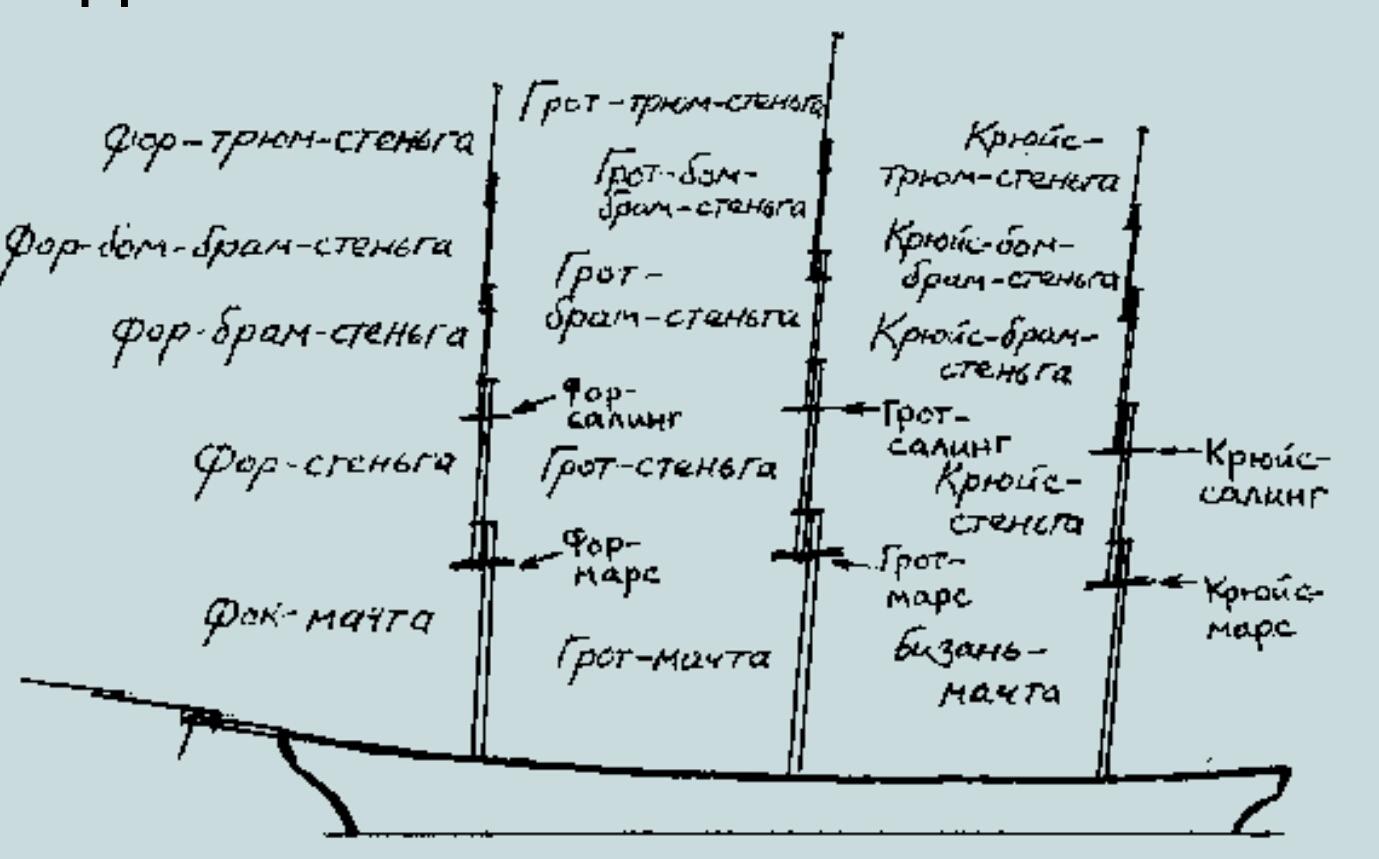 Фор-трюм-стеньга
Фор-бом-брам-стеньга
Фор-брам-стеньга
Фор-стеньга
Фок-мачта
Фор-
салинг
Фор-
марс
Грот-трюм-стеньга
Грот-бом-
брам-стеньга
Грот-
брам-стеньга
Грот-стеньга
Грот-мачта
Грот-
салинг
Грот-
марс
Крюйс-
трюм-стеньга
Крюйс-бом-
брам-стеньга
Крюйс-брам-
стеньга
Крюйс-
стеньга
Бизань-
мачта
Крюйс-
салинг
Крюйс-
марс